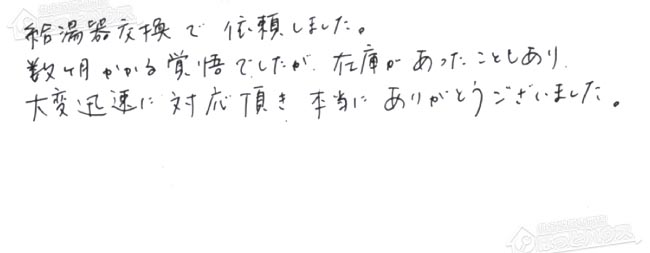 給湯器交換で依頼しました。
数ヶ月かかる覚悟でしたが、在庫があったこともあり
大変迅速に対応頂き本当にありがとうございました。